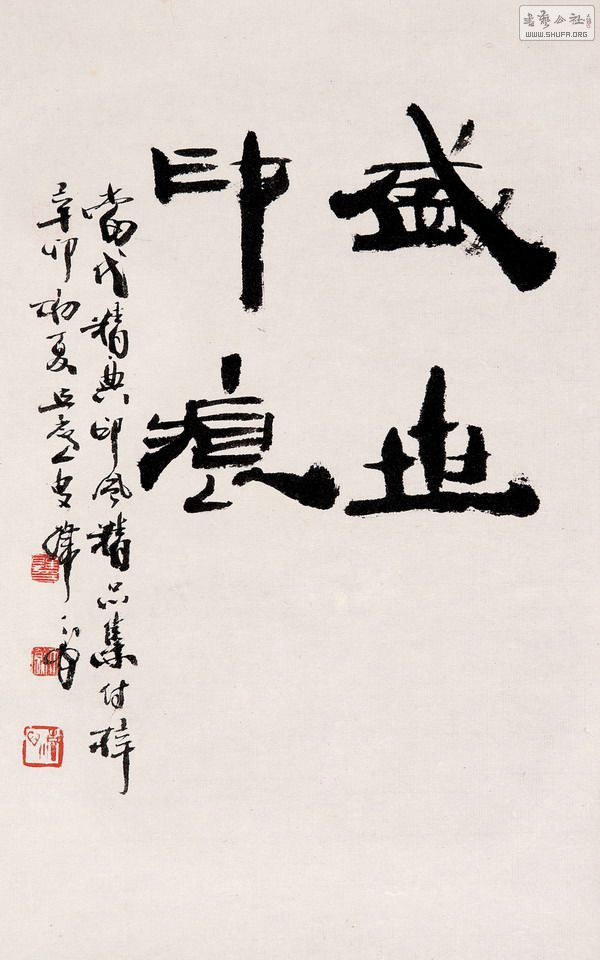 盛世
印痕
當代精典印風精品集付梓
辛卯初夏
书艺公社
WWW.SHUFA.ORG